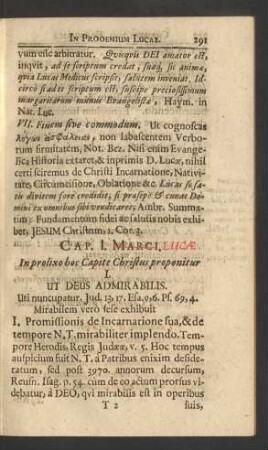 IN PROOEMIUM LUCAE. 291
vum esse arbitratur. Quisquis DEI amator est,
inqvit, ad se scriptum credat, suaq́, sic anima,
qvia Lucas Medicus scripsit, salutem inveniat. Id-
circò si ad te scriptum est, suscipe preciosissimum
margaritarum munus Evangelistæ, Haym. in
Nat. Luc.
VII. Finem sive commodum. Ut cognoscas
λόγων ἀσφάλειαν, non labascentem Verbo-
rum firmitatem, Not. Bez. Nisi enim Evange-
lica Historia extaret, & inprimis D. Lucæ, nihil
certi sciremus de Christi Incarnatione, Nativi-
tate, Circumcisione, Oblatione &c. Lucas se sa-
tis divitem fore credidit, si
ex omnibus sibi vendicaret, Ambr. Summa-
tim: Fundamentum fidei ac salutis nobis exhi-
bet, JESUM Christum, 1. Cor. 3.
CAP. I. MARCI, LUCÆ
In prolixo hoc Capite Christus proponitur
I.
UT DEUS ADMIRABILIS.
Uti nuncupatur. Jud. 13, 17. Esa. 9, 6. Ps. 69, 4.
Mirabilem verò sese exhibuit
1. Promissionis de Incarnatione sua, & de
tempore N. T. mirabiliter implendo. Tem-
pore Herodis, Regis Judææ, v. 5. Hoc tempus
auspicium fuit N. T. à Patribus enixim deside-
ratum, sed post 3970. annorum decursum,
Reusn. Isag. p. 54. cùm de eo actum prorsus vi-
debatur, à DEO, qvi mirabilis est in operibus
T 2 suis,